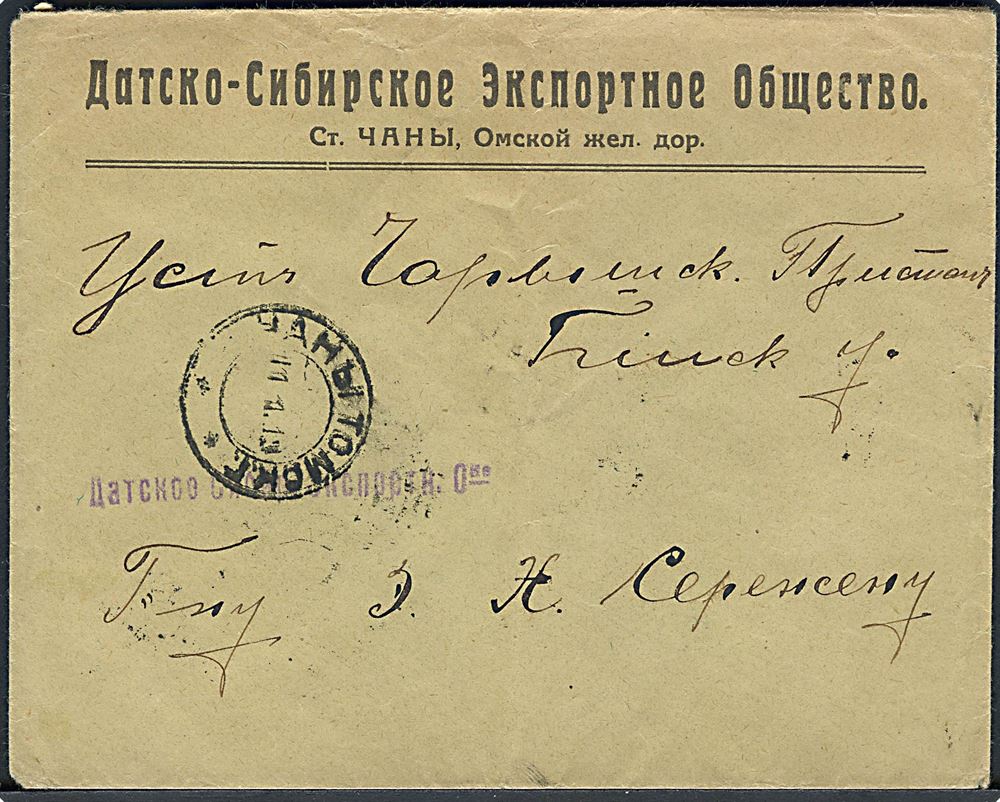 Датско-Сибирское Экспортное Общество.
Ст. ЧАНЫ, Омской жел. дор.
Усть Чарышск. Пристань
Бійск у.
ЧАНЫ ТОМСК.Г.
11.1.19
Датское Экспортн. О‑во
Г-ну Э. Н. Серенсену